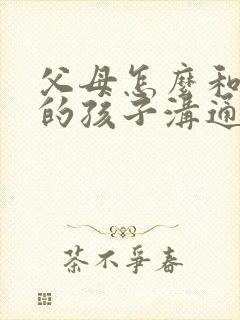 父母怎麼和
的孩子溝通
茶不爭春